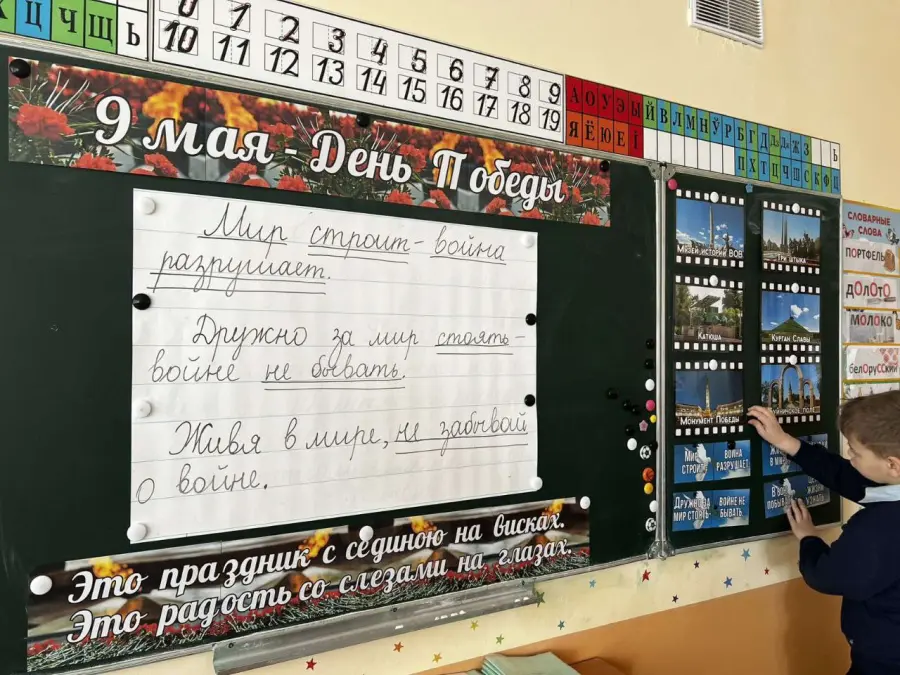 Ц Ч Щ Ь
0 1 2 3 4 5 6 7 8 9
10 11 12 13 14 15 16 17 18 19
А О У Э Ы Й В Л М Н Ў Р Б Г Д Дз Дж Ж З Ь
Я Ё Ю Е І П Х Т Ц Ч Ш С К Ф Ц
9 мая - День Победы
Мир строит - война
разрушает.
Дружно за мир стоять -
войне не бывать.
Живя в мире, не забывай
о войне.
Это праздник с сединою на висках.
Это радость со слезами на глазах.
Музей истории ВОВ
Три штыка
Катюша
Курган Славы
Монумент Победы
Мир
строит
война
разрушает
Дружно за
мир стоять-
войне не
бывать
СЛОВАРНЫЕ
СЛОВА
ПОРТФЕЛЬ
дОлОтО
МОЛОКО
белОруССкий